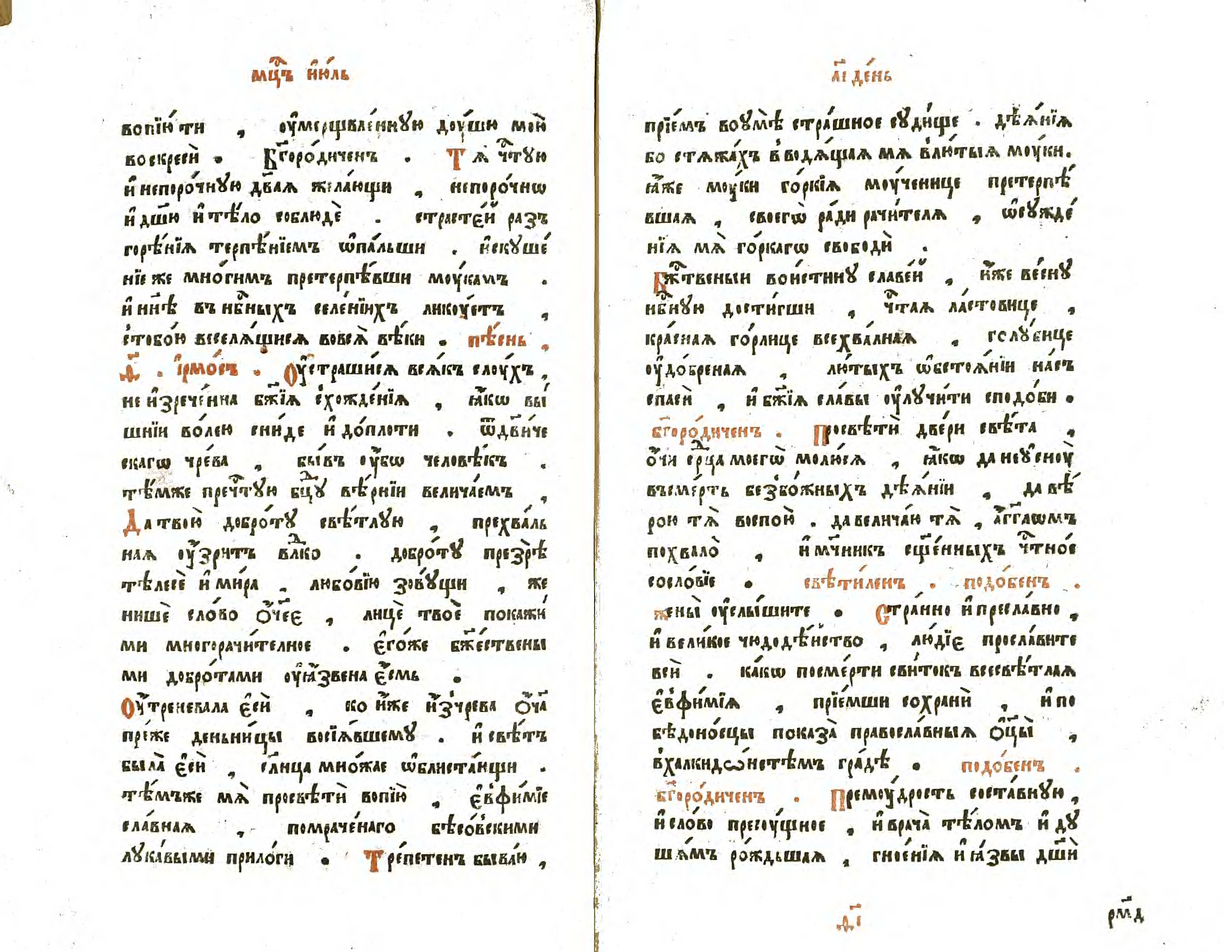 мц҃ъ і҆ю́ль
вопїю́ ти , оу҆мерщвле́нную доу́шю мою̀
воскресѝ . Бг҃оро́диченъ . Тѧ̀ чⷭ҇тую
и҆ непоро́чную дв҃аѧ жела́ющи , непоро́чнѡ
и҆ дш҃ю и҆ тѣ́ло соблюдѐ . страсте́й раз
горѣ́нїѧ терпѣ́нїемъ ѡ҆па́льши . и҆скуше́
нїе же мно́гимъ претерпѣ́вши моу́камъ .
и҆ нн҃ѣ въ нбⷭ҇ныхъ селе́нїихъ лику́етъ ,
с тобо́ю веселѧ́щисѧ во всѧ̀ вѣ́ки . пѣ́снь ,
д҃ . і҆рмо́съ . Оу҆страши́сѧ всѧ́къ слоу́хъ ,
неи҆зрече́нна бж҃їѧ схожде́нїѧ , ꙗ҆́кѡ вы́
шнїи во́лею сни́де и҆ до́ плоти . ѿ дв҃и́че
скагѡ чре́ва , бы́въ оу҆́бѡ человѣ́къ .
тѣ́мже пречⷭ҇тую бц҃у вѣ́рнїи велича́емъ ,
Да твою̀ добро́ту свѣ́тлую , прехва́ль
наѧ оу҆́зритъ влⷣко . добро́ту презрѣ̀
тѣлесѐ и҆ ми́ра , любо́вїю зову́щи , же
нише сло́во ѻ҆́чее , лицѐ твоѐ покажи́
ми многорачи́телное . є҆го́же бж҃е́ственны
ми добро́тами оу҆ꙗ҆́звена є҆́смь .
Оу҆́треневала є҆сѝ , ко и҆́же и҆з чре́ва ѻ҆ч҃а
пре́же деньни́цы восїѧ́вшему . и҆ свѣ́тъ
была̀ є҆сѝ , сл҃нца мно́жае ѡ҆блиста́ющи .
тѣ́мъже мѧ̀ просвѣтѝ вопїю̀ , є҆вфи́мїе
сла́внаѧ , помраче́наго бѣсо́вскими
лука́выми прило́ги . Тре́петенъ быва́ю ,
а҃і де́нь
прїе́мъ во оу҆мѣ̀ стра́шное суди́ще . дѣѧ́нїѧ
бо стѧжа́хъ вводѧ́щаѧ мѧ в лю́тыѧ моу́ки .
ꙗ҆́же моу́ки го́ркїѧ моу́ченице претерпѣ́
вшаѧ , своегѡ̀ ра́ди рачи́телѧ , ѡ҆сужде́
нїѧ мѧ̀ го́ркагѡ свободѝ .
Бж҃твеныи вои́стину славе́й , и҆́же весну̀
нбⷭ҇ную дости́гши , чⷭ҇таѧ ла́стовице ,
кра́снаѧ го́рлице всехва́лнаѧ , голу́бице
оу҆до́бренаѧ , лю́тыхъ ѡ҆бстоѧ́нїи на́съ
спасѝ , и҆ бж҃їѧ сла́вы оу҆лучи́ти сподо́би .
бг҃оро́диченъ . Просвѣтѝ две́ри свѣ́та ,
ѻ҆́чи срⷣца моегѡ̀ молю́сѧ , ꙗ҆́кѡ да не оу҆сну̀
въ сме́рть безбо́жныхъ дѣѧ́нїи , да вѣ́
рою тѧ̀ воспою̀ . да велича́ю тѧ̀ , а҆́гг҃лѡмъ
похвало̀ , и҆ мч҃никъ сщ҃е́нныхъ чⷭ҇тно́е
сосло́вїе . свѣти́ленъ . подо́бенъ .
жены̀ оу҆слы́шите . Стра́нно и҆ пресла́вно ,
и҆ вели́кое чюдодѣ́йство , лю́дїе просла́вите
всѝ . ка́кѡ по сме́рти сви́токъ всесвѣ́тлаѧ
є҆вфи́мїѧ , прїе́мши сохранѝ , и҆ по
бѣдоно́сцы показа̀ правосла́вныѧ ѻ҆ц҃ы̀ ,
в халкидѡ́нстѣмъ гра́дѣ . подо́бенъ .
бг҃оро́диченъ . Премоу́дрость соста́вную ,
и҆ сло́во пресу́щное , и҆ врача̀ тѣло́мъ и҆ ду
шѧ́мъ ро́ждьшаѧ , гное́нїѧ и҆ ꙗ҆́звы дш҃ѝ
д҃і
рм҃д